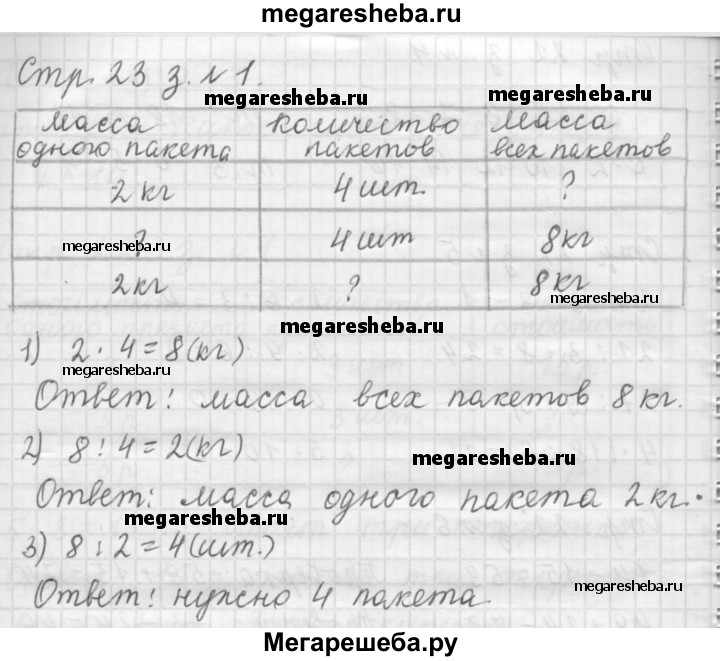 megaresheba.ru
Стр. 23 з. № 1.
megaresheba.ru
megaresheba.ru
масса одного пакета | количество пакетов | масса всех пакетов
2 кг | 4 шт. | ?
? | 4 шт | 8 кг
megaresheba.ru
2 кг | ? | 8 кг
megaresheba.ru
megaresheba.ru
1) 2 · 4 = 8 (кг)
megaresheba.ru
Ответ: масса всех пакетов 8 кг.
2) 8 : 4 = 2 (кг)
megaresheba.ru
Ответ: масса одного пакета 2 кг.
megaresheba.ru
3) 8 : 2 = 4 (шт.)
megaresheba.ru
Ответ: нужно 4 пакета.
Мегарешеба.ру